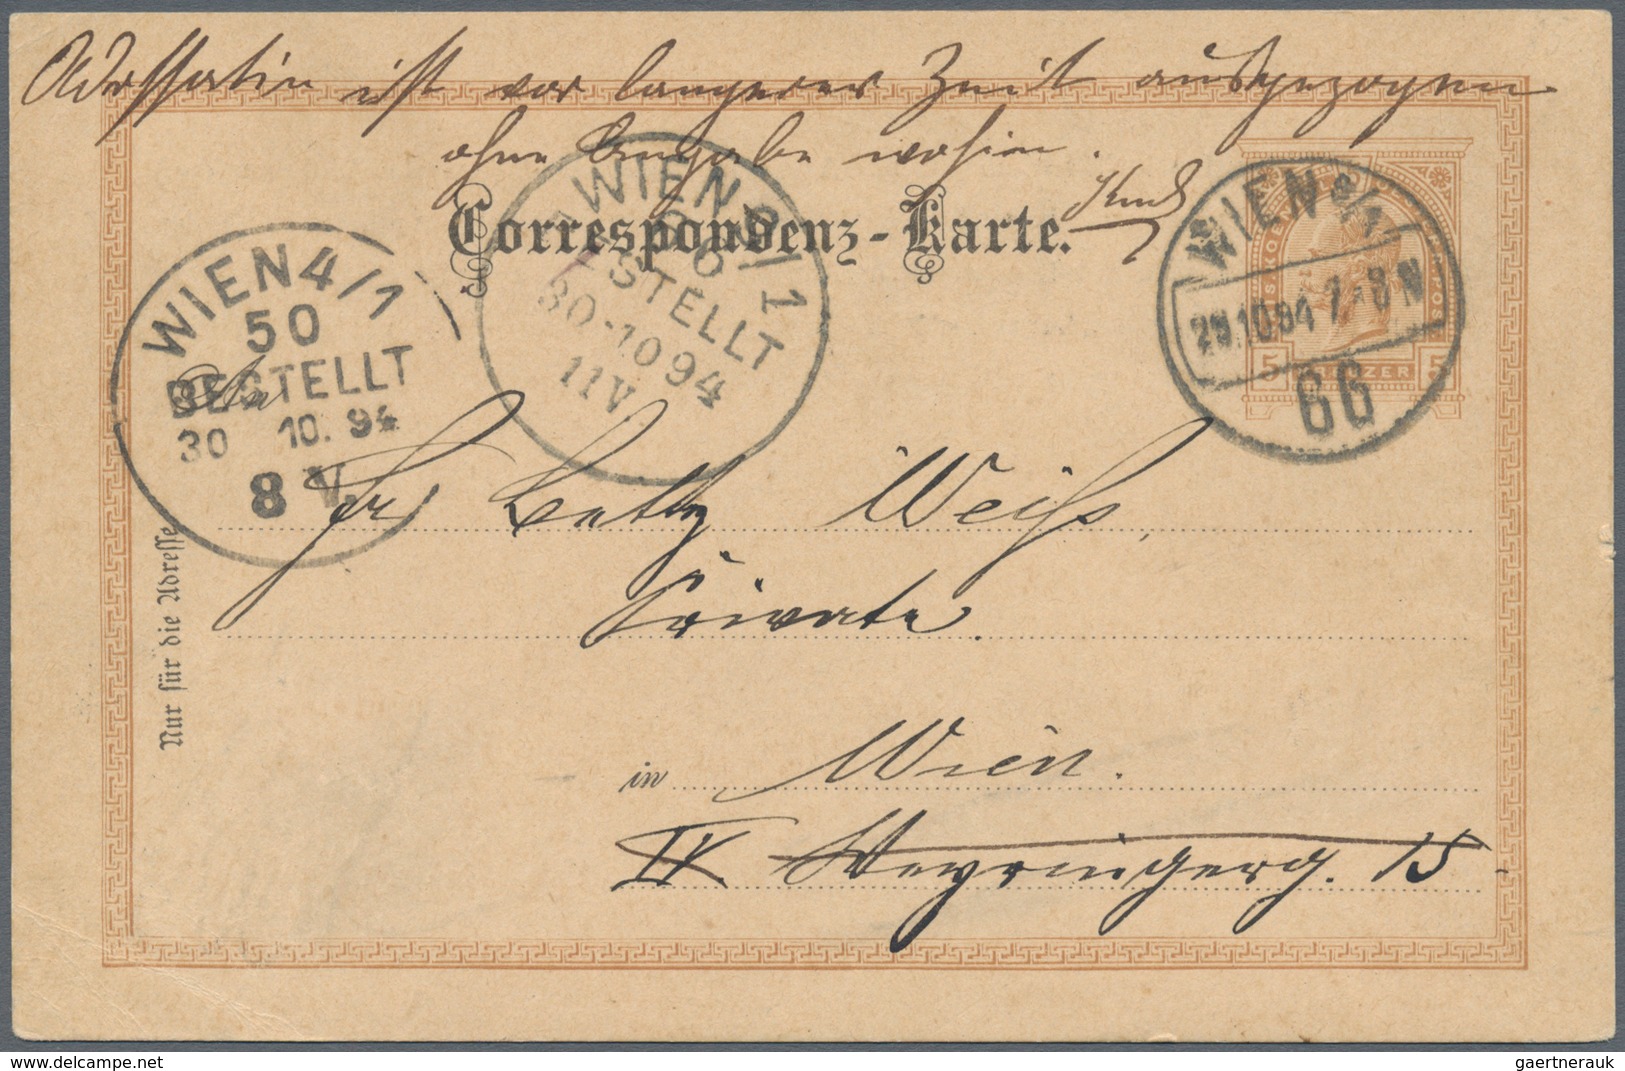 Adressatin ist vor längerer Zeit ausgezogen
ohne Angabe wohin.
Correspondenz-Karte.
WIEN 4/1
50
BESTELLT
30 10. 94
8 V.
WIEN /1
BESTELLT
30-10 94
11 V
WIEN
29.10.94 7-8 N
66
5 KREUZER 5
An
Fr. Betty Weiss,
Private.
Nur für die Adresse
in Wien.
IX. Weyringerg. 15
gaertnerauk